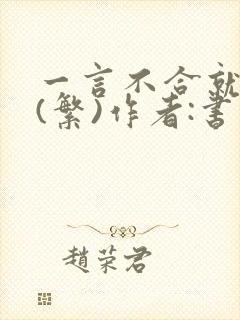 一言不合就
(繁)作者:書
趙荣君